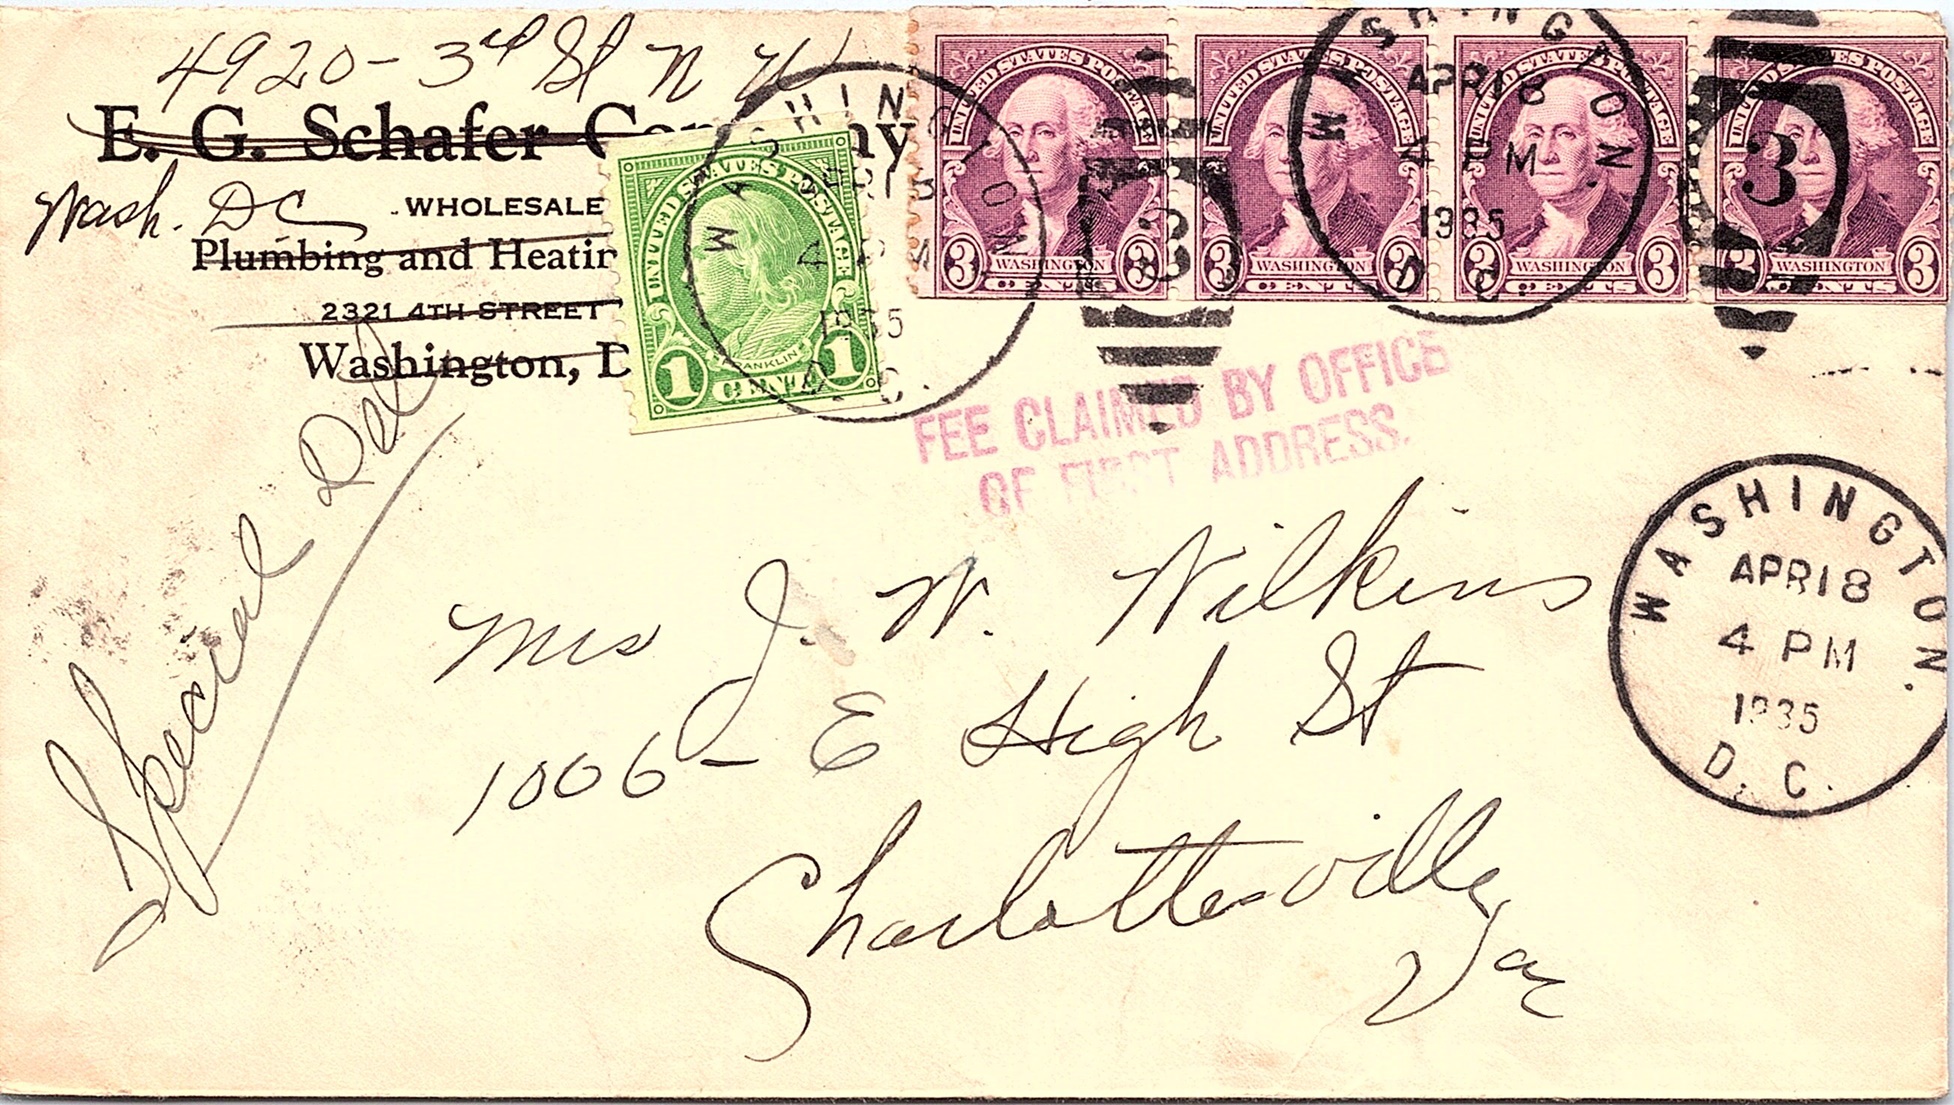 4920-3rd St N W
E. G. Schafer Company
Wash. DC
WHOLESALE
Plumbing and Heatin
2321 4TH STREET
Washington, D
Special Del
UNITED STATES POSTAGE
FRANKLIN
1 CENT 1
WASHINGTON
APR 18
4 PM
1935
D. C.
UNITED STATES POSTAGE
3 WASHINGTON 3
CENTS
UNITED STATES POSTAGE
3 WASHINGTON 3
CENTS
UNITED STATES POSTAGE
3 WASHINGTON 3
CENTS
UNITED STATES POSTAGE
3 WASHINGTON 3
CENTS
WASHINGTON
APR 18
4 PM
1935
D. C.
3
3
FEE CLAIMED BY OFFICE
OF FIRST ADDRESS.
WASHINGTON
APR 18
4 PM
1935
D. C.
Mrs J. W. Wilkins
1006- E High St
Charlottesville
Va